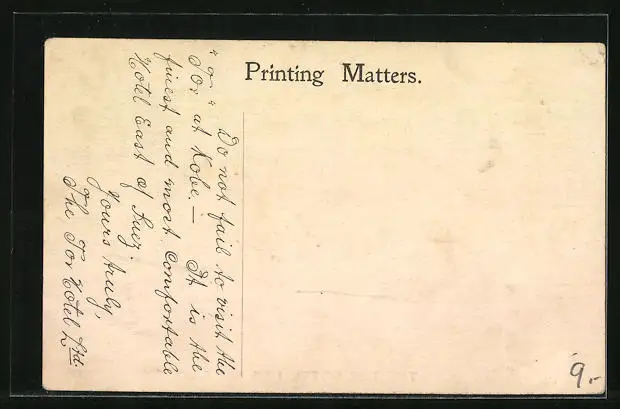 Printing Matters.
Do not fail to visit the
"Tor" at Kobe. — It is the
finest and most comfortable
Hotel East of Suez.
Yours truly,
The Tor Hotel Ltd.
9.-